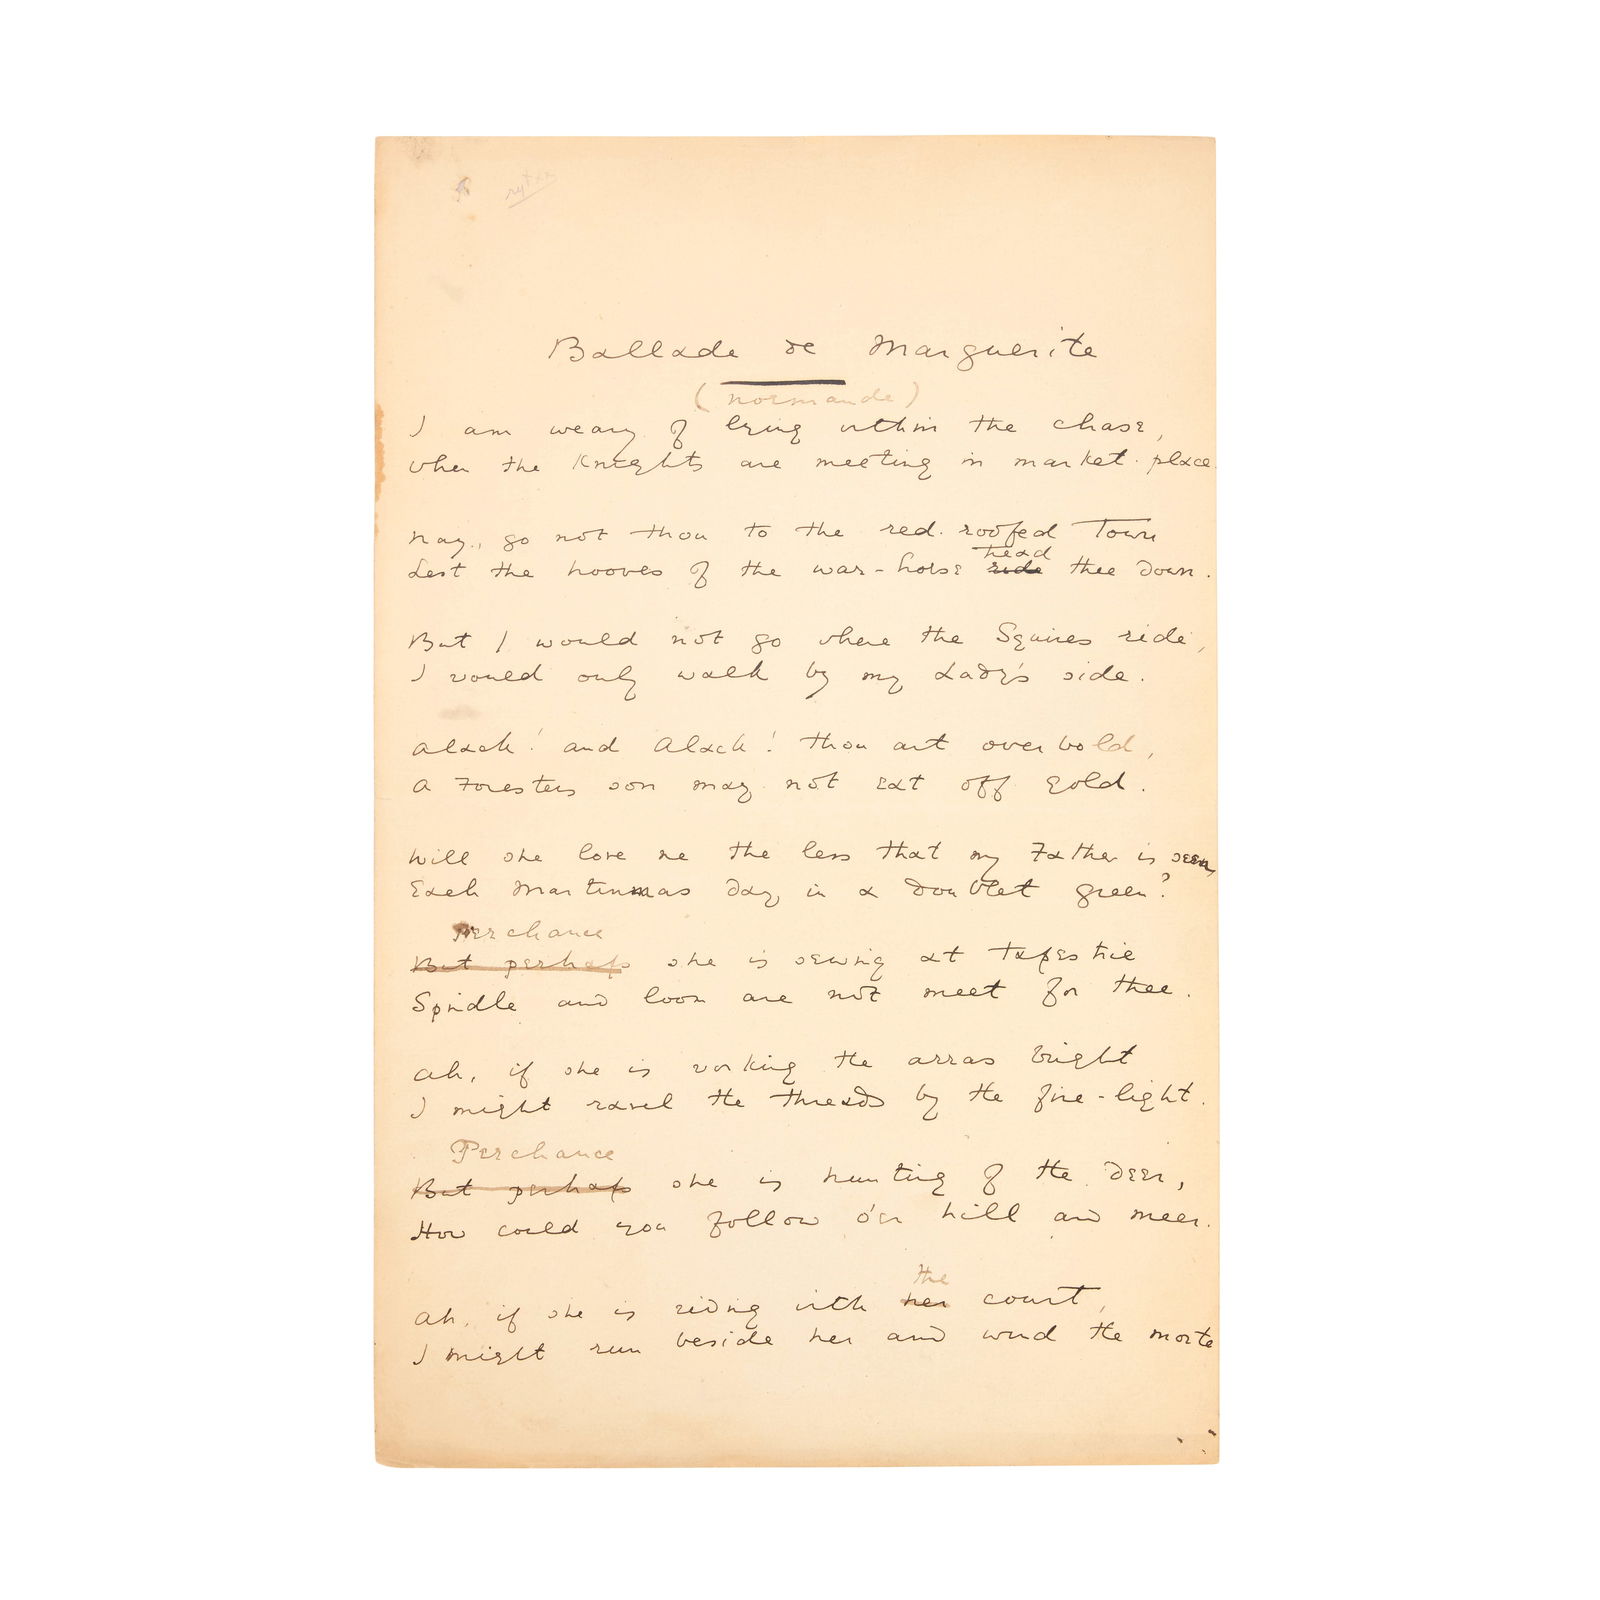 Ballade de Marguerite
(normande)
I am weary of lying within the chase,
When the Knights are meeting in market-place.
Nay, go not thou to the red-roofed Town
tread
Lest the hooves of the war-horse ride thee down.
But I would not go where the Squires ride,
I would only walk by my Lady's side.
Alack! and Alack! thou art over bold,
A Foresters son may not eat off gold.
Will she love me the less that my Father is seen,
Each Martinmas day in a doublet green?
Perchance
But perhaps she is sewing at tapestrie
Spindle and loom are not meet for thee.
Ah, if she is working the arras bright
I might ravel the threads by the fire-light.
Perchance
But perhaps she is hunting of the deer,
How could you follow o'er hill and meer.
the
Ah, if she is riding with her court,
I might run beside her and wind the morte